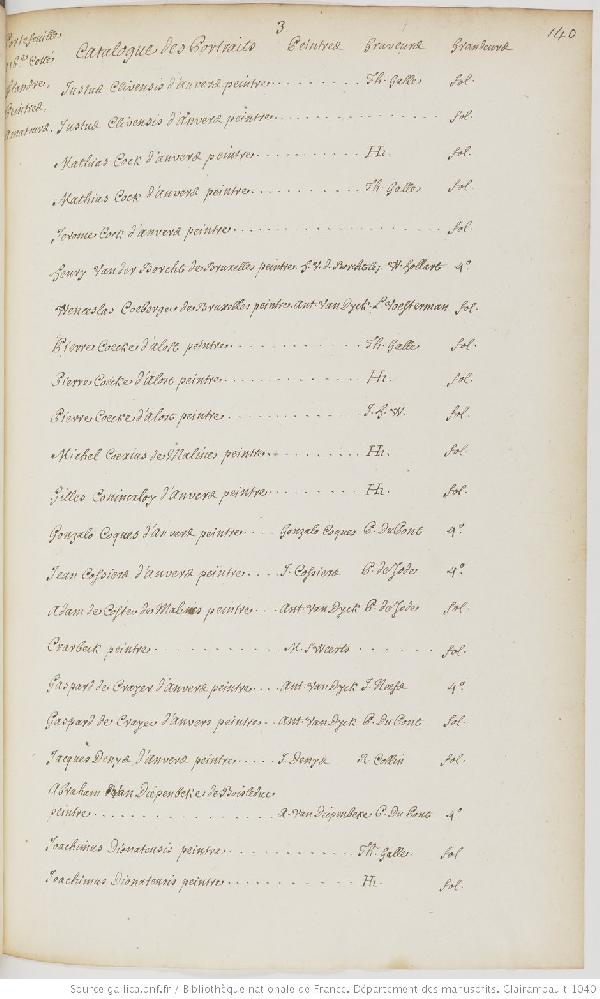 3
140
Portefeuille
Flandre,
Peintres
Catalogue des Portraits Peintres Graveurs Grandeurs
Justus Clivensis d'anvers peintre Th. Galle fol.
Justus Clivensis d'anvers peintre fol.
Mathias Cock d'anvers peintre H. fol.
Mathias Cock d'anvers peintre Th. Galle fol.
Jerome Cock d'anvers peintre fol.
Henry Van der Borcht de Bruxelles peintre H. V. d. Borcht W. Hollart 4º
Wenceslas Coeberge de Bruxelles peintre Ant. Van Dyck L. Voesterman fol.
Pierre Coecke d'alost peintre Th. Galle fol.
Pierre Coecke d'alost peintre H. fol.
Pierre Coecke d'alost peintre J. H. W. fol.
Michel Coexius de Malines peintre H. fol.
Gilles Coninxloy d'anvers peintre H. fol.
Gonzalo Coques d'anvers peintre Gonzalo Coques P. Du Pont 4º
Jean Cossiers d'anvers peintre J. Cossiers P. de Jode 4º
Adam de Coster de Malines peintre Ant. Van Dyck P. de Jode fol.
Crarbeck peintre M. Sweerts fol.
Gaspard de Crayer d'anvers peintre Ant. Van Dyck J. Neefs 4º
Gaspard de Crayer d'anvers peintre Ant. Van Dyck P. Du Pont fol.
Jacques Denys d'anvers peintre J. Denys R. Collin fol.
Abraham Van Diepenbeke de Boisleduc
peintre A. Van Diepenbeke P. Du Pont 4º
Joachimus Dionatensis peintre Th. Galle fol
Joachimus Dionatensis peintre H. fol.
Source gallica.bnf.fr / Bibliothèque nationale de France. Département des manuscrits. Clairambault 1040